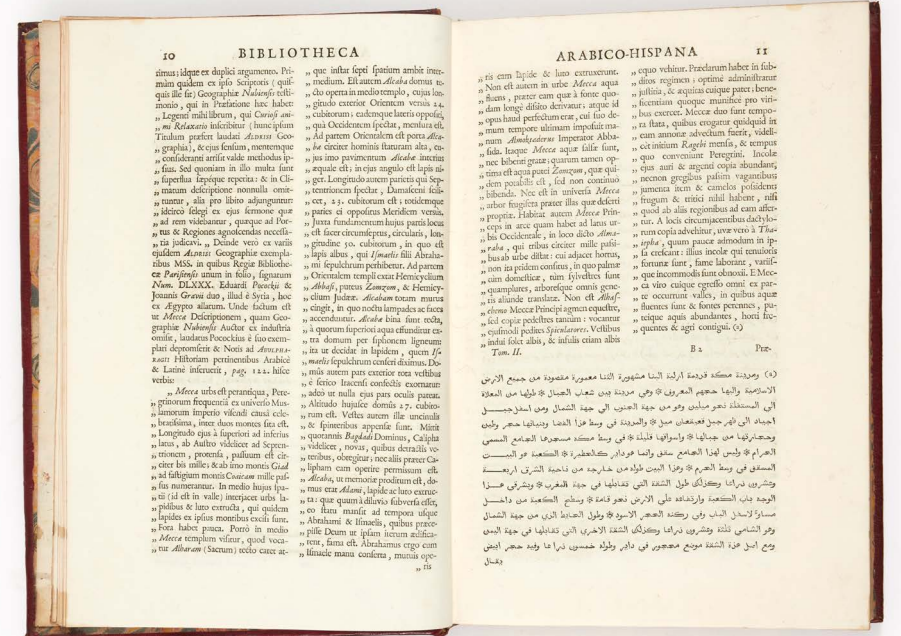 10 BIBLIOTHECA
rimus; idque ex duplici argumento. Pri-
mùm quidem ex ipso Scriptoris (quis-
quis ille sit) Geographiæ Nubiensis testi-
monio, qui in Præfatione hæc habet:
„ Legenti mihi librum, qui Curiosi ani-
„ mi Relaxatio inscribitur (hunc ipsum
Titulum præfert laudati ALDRISI Geo-
„ graphia), & ejus sensum, mentemque
„ consideranti arrisit valde methodus ip-
„ sius. Sed quoniam in illo multa sunt
„ superflua sæpéque repetita: & in Cli-
„ matum descriptione nonnulla omit-
„ tuntur, alia pro libito adjunguntur:
„ idcircò selegi ex ejus sermone quæ
„ ad rem videbantur, quæque ad Por-
„ tus & Regiones agnoscendas necessa-
„ ria judicavi. „ Deinde verò ex variis
ejusdem ALDRISI Geographiæ exempla-
ribus MSS. in quibus Regiæ Bibliothe-
cæ Parisiensis unum in folio, signatum
Num. DLXXX. Eduardi Pocockii &
Joannis Gravii duo, illud è Syria, hoc
ex Ægypto allatum. Unde factum est
ut Meccæ Descriptionem, quam Geo-
graphiæ Nubiensis Auctor ex industria
omisit, laudatus Pocockius è suo exem-
plari depromserit & Notis ad ABULFA-
RAGII Historiam pertinentibus Arabicè
& Latinè inseruerit, pag. 122. hisce
verbis:
„ Mecca urbs est perantiqua, Pere-
„ grinorum frequentiâ ex universo Mus-
„ lamorum imperio visendi causâ cele-
„ bratissima, inter duos montes sita est.
„ Longitudo ejus à superiori ad inferius
„ latus, ab Austro videlicet ad Septen-
„ trionem, protensa, passuum est cir-
„ citer bis mille; & ab imo montis Giad
„ ad fastigium montis Coaicam mille pas-
„ sus numerantur. In medio hujus spa-
„ tii (id est in valle) interjacet urbs la-
„ pidibus & luto extructa, qui quidem
„ lapides ex ipsius montibus excisi sunt.
„ Fora habet pauca. Porrò in medio
„ Meccæ templum visitur, quod voca-
„ tur Alharam (Sacrum) tecto caret at-
„ que instar septi spatium ambit inter-
„ medium. Est autem Alcaba domus te-
„ cto operta in medio templo, cujus lon-
„ gitudo exterior Orientem versùs 24.
„ cubitorum; eademque lateris oppositi,
„ quà Occidentem spectat, mensura est.
„ Ad partem Orientalem est porta Alca-
„ ba circiter hominis staturam alta, cu-
„ jus imo pavimentum Alcabæ interius
„ æquale est; in ejus angulo est lapis ni-
„ ger. Longitudo autem parietis qui Sep-
„ tentrionem spectat, Damasceni scili-
„ cet, 23. cubitorum est; totidemque
„ paries ei oppositus Meridiem versùs.
„ Juxta fundamentum hujus partis locus
„ est sacer circumseptus, circularis, lon-
„ gitudine 50. cubitorum, in quo est
„ lapis albus, qui Ismaelis filii Abraha-
„ mi sepulchrum perhibetur. Ad partem
„ Orientalem templi extat Hemicyclium
„ Abbasi, puteus Zomzom, & Hemicy-
„ clium Judææ. Alcabam totam murus
„ cingit, in quo noctu lampades ac faces
„ accenduntur. Alcabæ bina sunt tecta,
„ à quorum superiori aqua effunditur ex-
„ tra domum per siphonem ligneum:
„ ita ut decidat in lapidem, quem Is-
„ maelis sepulchrum censeri diximus. Do-
„ mûs autem pars exterior tota vestibus
„ è serico Iracensi confectis exornatur:
„ adeò ut nulla ejus pars oculis pateat.
„ Altitudo hujusce domûs 27. cubito-
„ rum est. Vestes autem illæ uncinulis
„ & spinteribus appensæ sunt. Mittit
„ quotannis Bagdadi Dominus, Calipha
„ videlicet, novas, quibus detractis ve-
„ teribus, obtegitur; nec aliis præter Ca-
„ lipham eam operire permissum est.
„ Alcaba, ut memoriæ proditum est, do-
„ mus erat Adami, lapide ac luto extruc-
„ ta: quæ quum à diluvio subversa esset,
„ eo statu mansit ad tempora usque
„ Abrahami & Ismaelis, quibus præce-
„ pisse Deum ut ipsam iterum ædifica-
„ rent, fama est. Abrahamus ergo cum
„ Ismaele manu conserta, mutuis ope-
„ ris
ARABICO-HISPANA 11
„ ris eam lapide & luto extruxerunt.
„ Non est autem in urbe Mecca aqua
„ fluens, præter eam quæ à fonte quo-
„ dam longè dissito derivatur; atque id
„ opus haud perfectum erat, cui suo de-
„ mum tempore ultimam imposuit ma-
„ num Almokgaderus Imperator Abba-
„ sida. Itaque Meccæ aquæ salsæ sunt,
„ nec bibenti gratæ; quarum tamen op-
„ tima est aqua putei Zomzom, quæ qui-
„ dem potabilis est, sed non continuò
„ bibenda. Nec est in universa Mecca
„ arbor frugifera præter illas quæ deserti
„ propriæ. Habitat autem Meccæ Prin-
„ ceps in arce quam habet ad latus ur-
„ bis Occidentale, in loco dicto Alma-
„ raba, qui tribus circiter mille passi-
„ bus ab urbe distat: cui adjacet hortus,
„ non ita pridem consitus, in quo palmæ
„ cùm domesticæ, tùm sylvestres sunt
„ quamplures, arboresque omnis gene-
„ ris aliunde translatæ. Non est Alhas-
„ chemo Meccæ Principi agmen equestre,
„ sed copiæ pedestres tantùm: vocantur
„ ejusmodi pedites Spiculatores. Vestibus
„ indui solet albis, & infulis etiam albis
Tom. II.
„ equo vehitur. Præclarum habet in sub-
„ ditos regimen; optimè administratur
„ justitia, & æquitas cuique patet; bene-
„ ficentiam quoque munificè pro viri-
„ bus exercet. Meccæ duo sunt tempo-
„ ra stata, quibus erogatur quidquid in
„ eam annonæ advectum fuerit, videli-
„ cèt initium Ragebi mensis, & tempus
„ quo conveniunt Peregrini. Incolæ
„ ejus auri & argenti copia abundant,
„ necnon gregibus passim vagantibus;
„ jumenta item & camelos possident;
„ frugum & tritici nihil habent, nisi
„ quod ab aliis regionibus ad eam affer-
„ tur. A locis circumjacentibus dactylo-
„ rum copia advehitur, uvæ verò à Tha-
„ iepha, quum paucæ admodum in ip-
„ sa crescant: illius incolæ qui tenuioris
„ fortunæ sunt, fame laborant, variis-
„ que incommodis sunt obnoxii. E Mec-
„ ca viro cuique egresso omni ex par-
„ te occurrunt valles, in quibus aquæ
„ fluentes sunt & fontes perennes, pu-
„ teique aquis abundantes, horti fre-
„ quentes & agri contigui. (a)
B 2 Præ-
(a) ومدينة مكة قديمة ازلية البنا مشهورة الثنا معمورة مقصودة من جميع الارض
الاسلامية واليها حجهم المعروف * وهي مدينة بين شعاب الجبال * طولها من المعلاة
الي المسفلة نحو ميلين وهو من جهة الجنوب الي جهة الشمال ومن اسفل جبل
اجياد الي ظهر جبل قعيقعان ميل * والمدينة في وسط هذا الفضا وبنيانها حجر وطين
وحجارتها من جبالها * واسواقها قليلة * في وسط مكة مسجدها الجامع المسمي
الحرام * وليس لهذا الجامع سقف وانما هو داير كالحظيرة * الكعبة هو البيت
المسقف في وسط الحرم * وهذا البيت طوله من خارجه من ناحية الشرق اربعة
وعشرون ذراعا وكذلك طول الشقة التي تقابلها في جهة المغرب * وبشرقي هذا
الوجه باب الكعبة وارتفاعه علي الارض نحو قامة * وسطح الكعبة من داخل
مساو لاسفل الباب وفي ركنه الحجر الاسود * وطول الحايط الذي من جهة الشمال
وهو الشامي ثلثة وعشرون ذراعا وكذلك الشقة الاخري التي تقابلها في جهة اليمن
ومع اصل هذه الشقة موضع محجور في داير وطوله خمسون ذراعا وفيه حجر ابيض
يقال